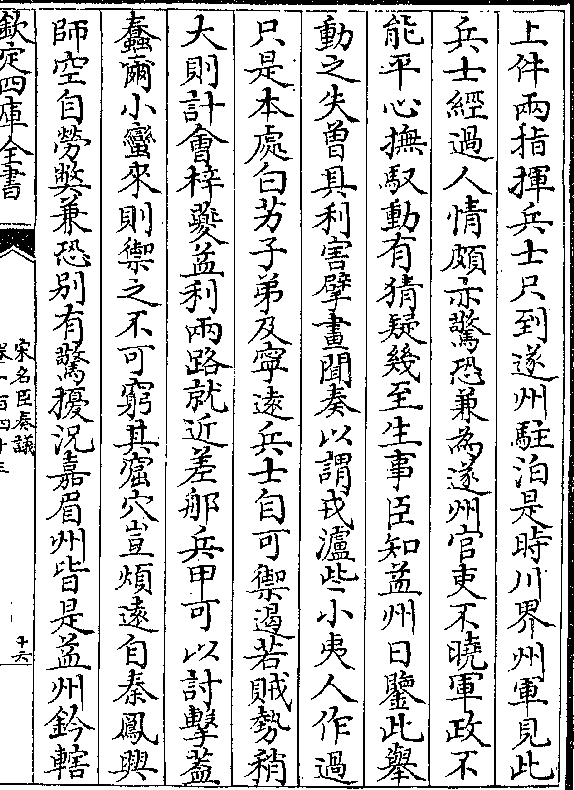 上件兩指揮兵士只到遂州駐泊是時川界州軍見此
兵士經過人情頗亦驚恐兼為遂州官吏不曉軍政不
能平心撫馭動有猜疑幾至生事臣知益州日鑒此舉
動之失曽具利害擘畫聞奏以謂戎瀘些小夷人作過
只是本處白芀子弟及寧逺兵士自可禦遏若賊勢稍
大則計會梓夔益利兩路就近差那兵甲可以討擊蓋
蠢爾小蠻來則禦之不可窮其窟穴豈煩逺自秦鳳興
師空自勞弊兼恐别有驚擾況嘉眉州皆是益州鈐轄
欽定四庫全書
宋名臣奏議
卷一百四十三
十六